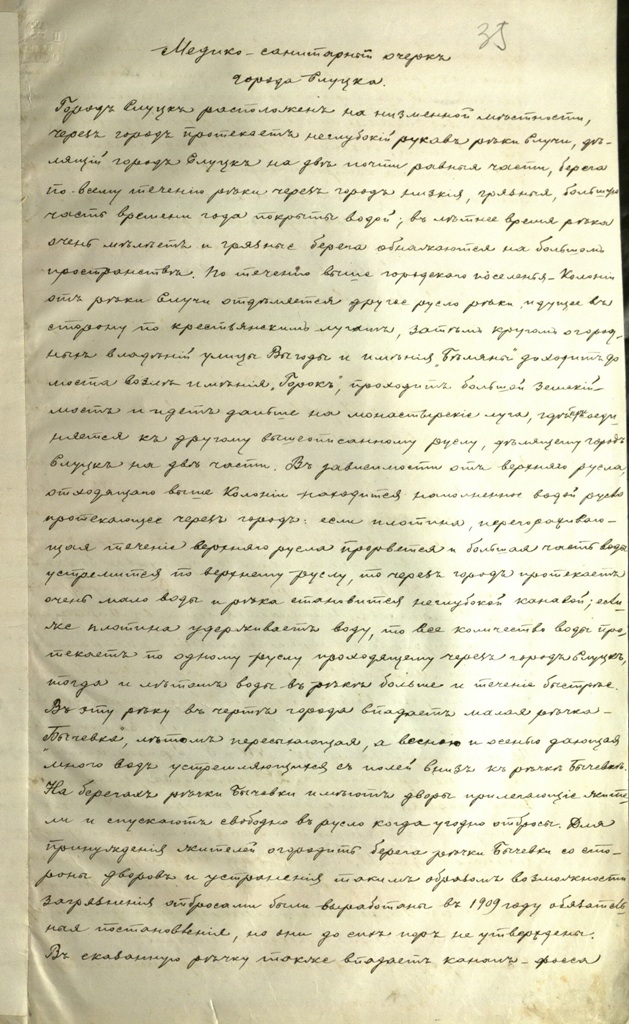 35
Медико-санитарный очеркъ
города Слуцка.
Городъ Слуцкъ расположенъ на низменной мѣстности,
черезъ городъ протекаетъ неглубокій рукавъ рѣки Случи, дѣ-
лящій городъ Слуцкъ на двѣ почти равныя части, берега
по всему теченію рѣки черезъ городъ низкія, грязныя, большую
часть времени года покрыты водой; въ лѣтнее время рѣка
очень мѣлѣетъ и грязные берега обнажаются на большомъ
пространствѣ. По теченію выше городского поселенья-Колоніи
отъ рѣки Случи отдѣляется другое русло рѣки идущее въ
сторону по крестьянскимъ лугамъ, затѣмъ кругомъ огород-
ныхъ владѣній улицы Выгоды и имѣнія доходитъ до
моста возлѣ имѣнія „Горокъ", проходитъ большой Земскій
мостъ и идетъ дальше на монастырскіе луга, гдѣ соеди-
няется къ другому вышеописанному руслу, дѣлящему городъ
Слуцкъ на двѣ части. Въ зависимости отъ верхняго русла
отходящаго выше Колоніи находится наполненное водой русло
протекающее черезъ городъ: если плотина, перегораживаю-
щая теченіе верхняго русла прорвется и большая часть воды
устремится по верхнему руслу, то черезъ городъ протекаетъ
очень мало воды и рѣка становится неглубокой канавой; если
же плотина удерживаетъ воду, то все количество воды про-
текаетъ по одному руслу проходящему черезъ городъ Слуцкъ,
тогда и лѣтомъ воды въ рѣкѣ больше и теченіе быстрѣе.
Въ эту рѣку въ чертѣ города впадаетъ малая рѣчка-
„Бычевка", лѣтомъ пересыхающая, а весною и осенью дающая
много водъ устремляющихся съ полей внизъ къ рѣчкѣ Бычевкѣ.
На берегахъ рѣчки Бычевки имѣютъ дворы прилегающіе жите-
ли и спускаютъ свободно въ русло когда угодно отбросы. Для
принужденія жителей огородить берега рѣчки Бычевки со сто-
роны дворовъ и устраненія такимъ образомъ возможности
загрязненія отбросами были выработаны въ 1909 году обязатель-
ныя постановленія, но они до сихъ поръ не утверждены.
Въ сказанную рѣчку также впадаетъ каналъ-фосса